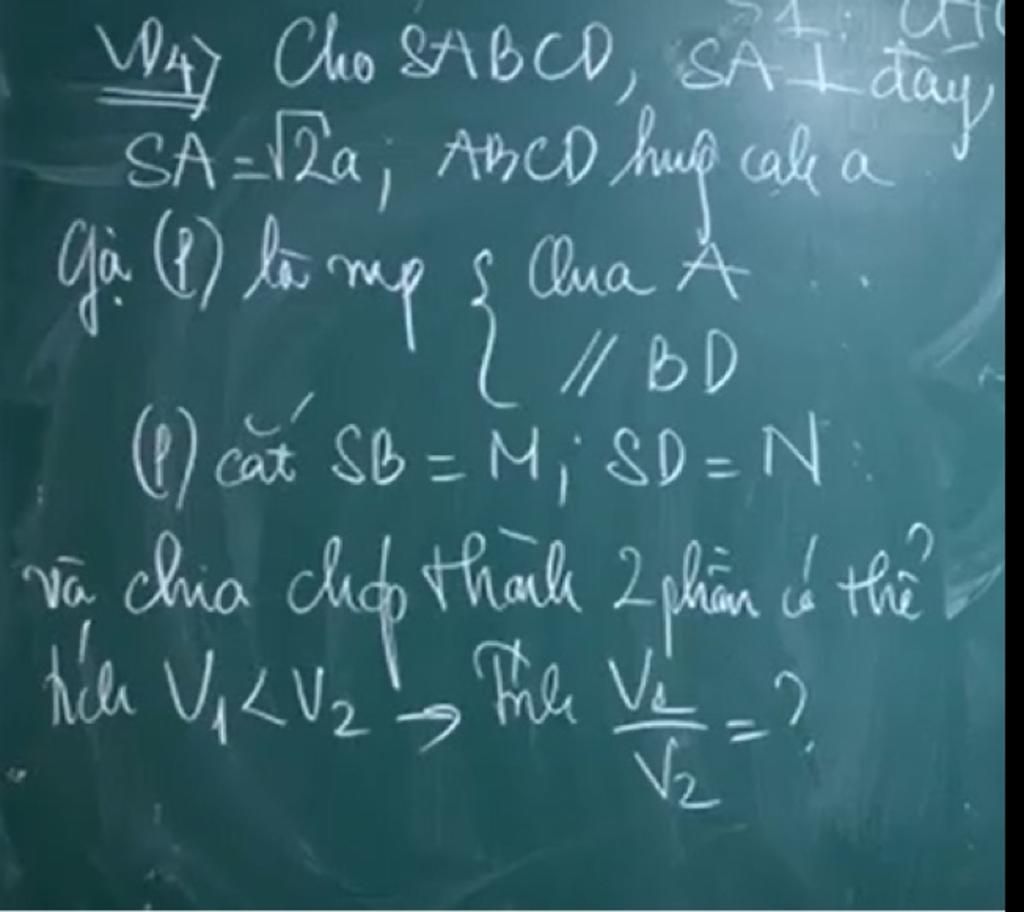 VD4) Cho SABCD, SA ⊥ đáy,
SA = √2a; ABCD hvg cạh a
Gọi (P) là mp { Qua A
// BD
(P) cắt SB = M; SD = N
và chia chóp thành 2 phần có thể
tích V1 < V2 → Tính V1/V2 = ?